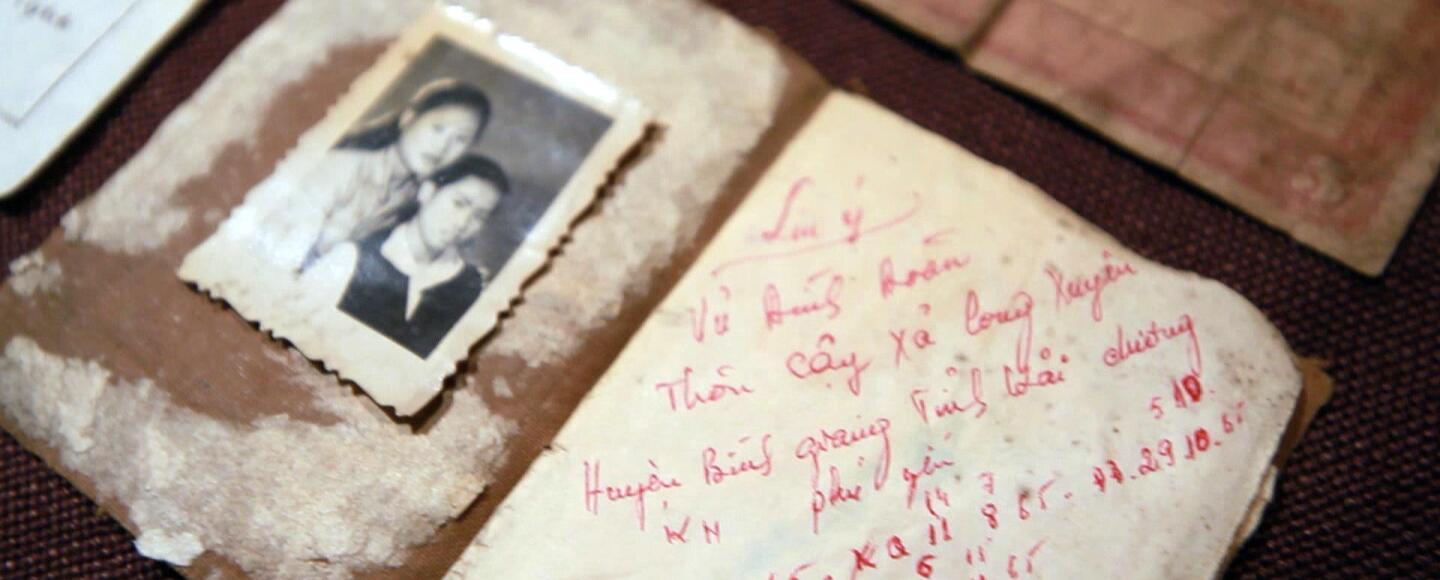 Lưu ý
Vũ Đình Đoàn
Thôn Cậy Xã Long Xuyên
Huyện Bình giang Tỉnh Hải dương
KN phú yên 5 10.
14 7
KQ 11 8 65. 29.10.65
6 11 65